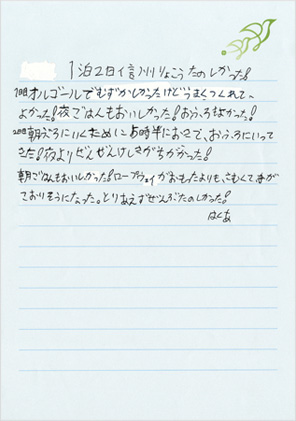 1泊2日信州りょこうたのしかった!
1日目オルゴールでむずかしかったけどうまくつくれて、
よかった!夜ごはんもおいしかった!おふろもよかった!
2日目朝ぶろにいくために5時半におきて、おふろにいって
きた!夜よりぜんぜんけしきがちがかった!
朝ごはんもおいしかった!ロープウェイがおもったよりも、さむくて手が
こおりそうになった。とりあえずぜんぶたのしかった!
はくあ